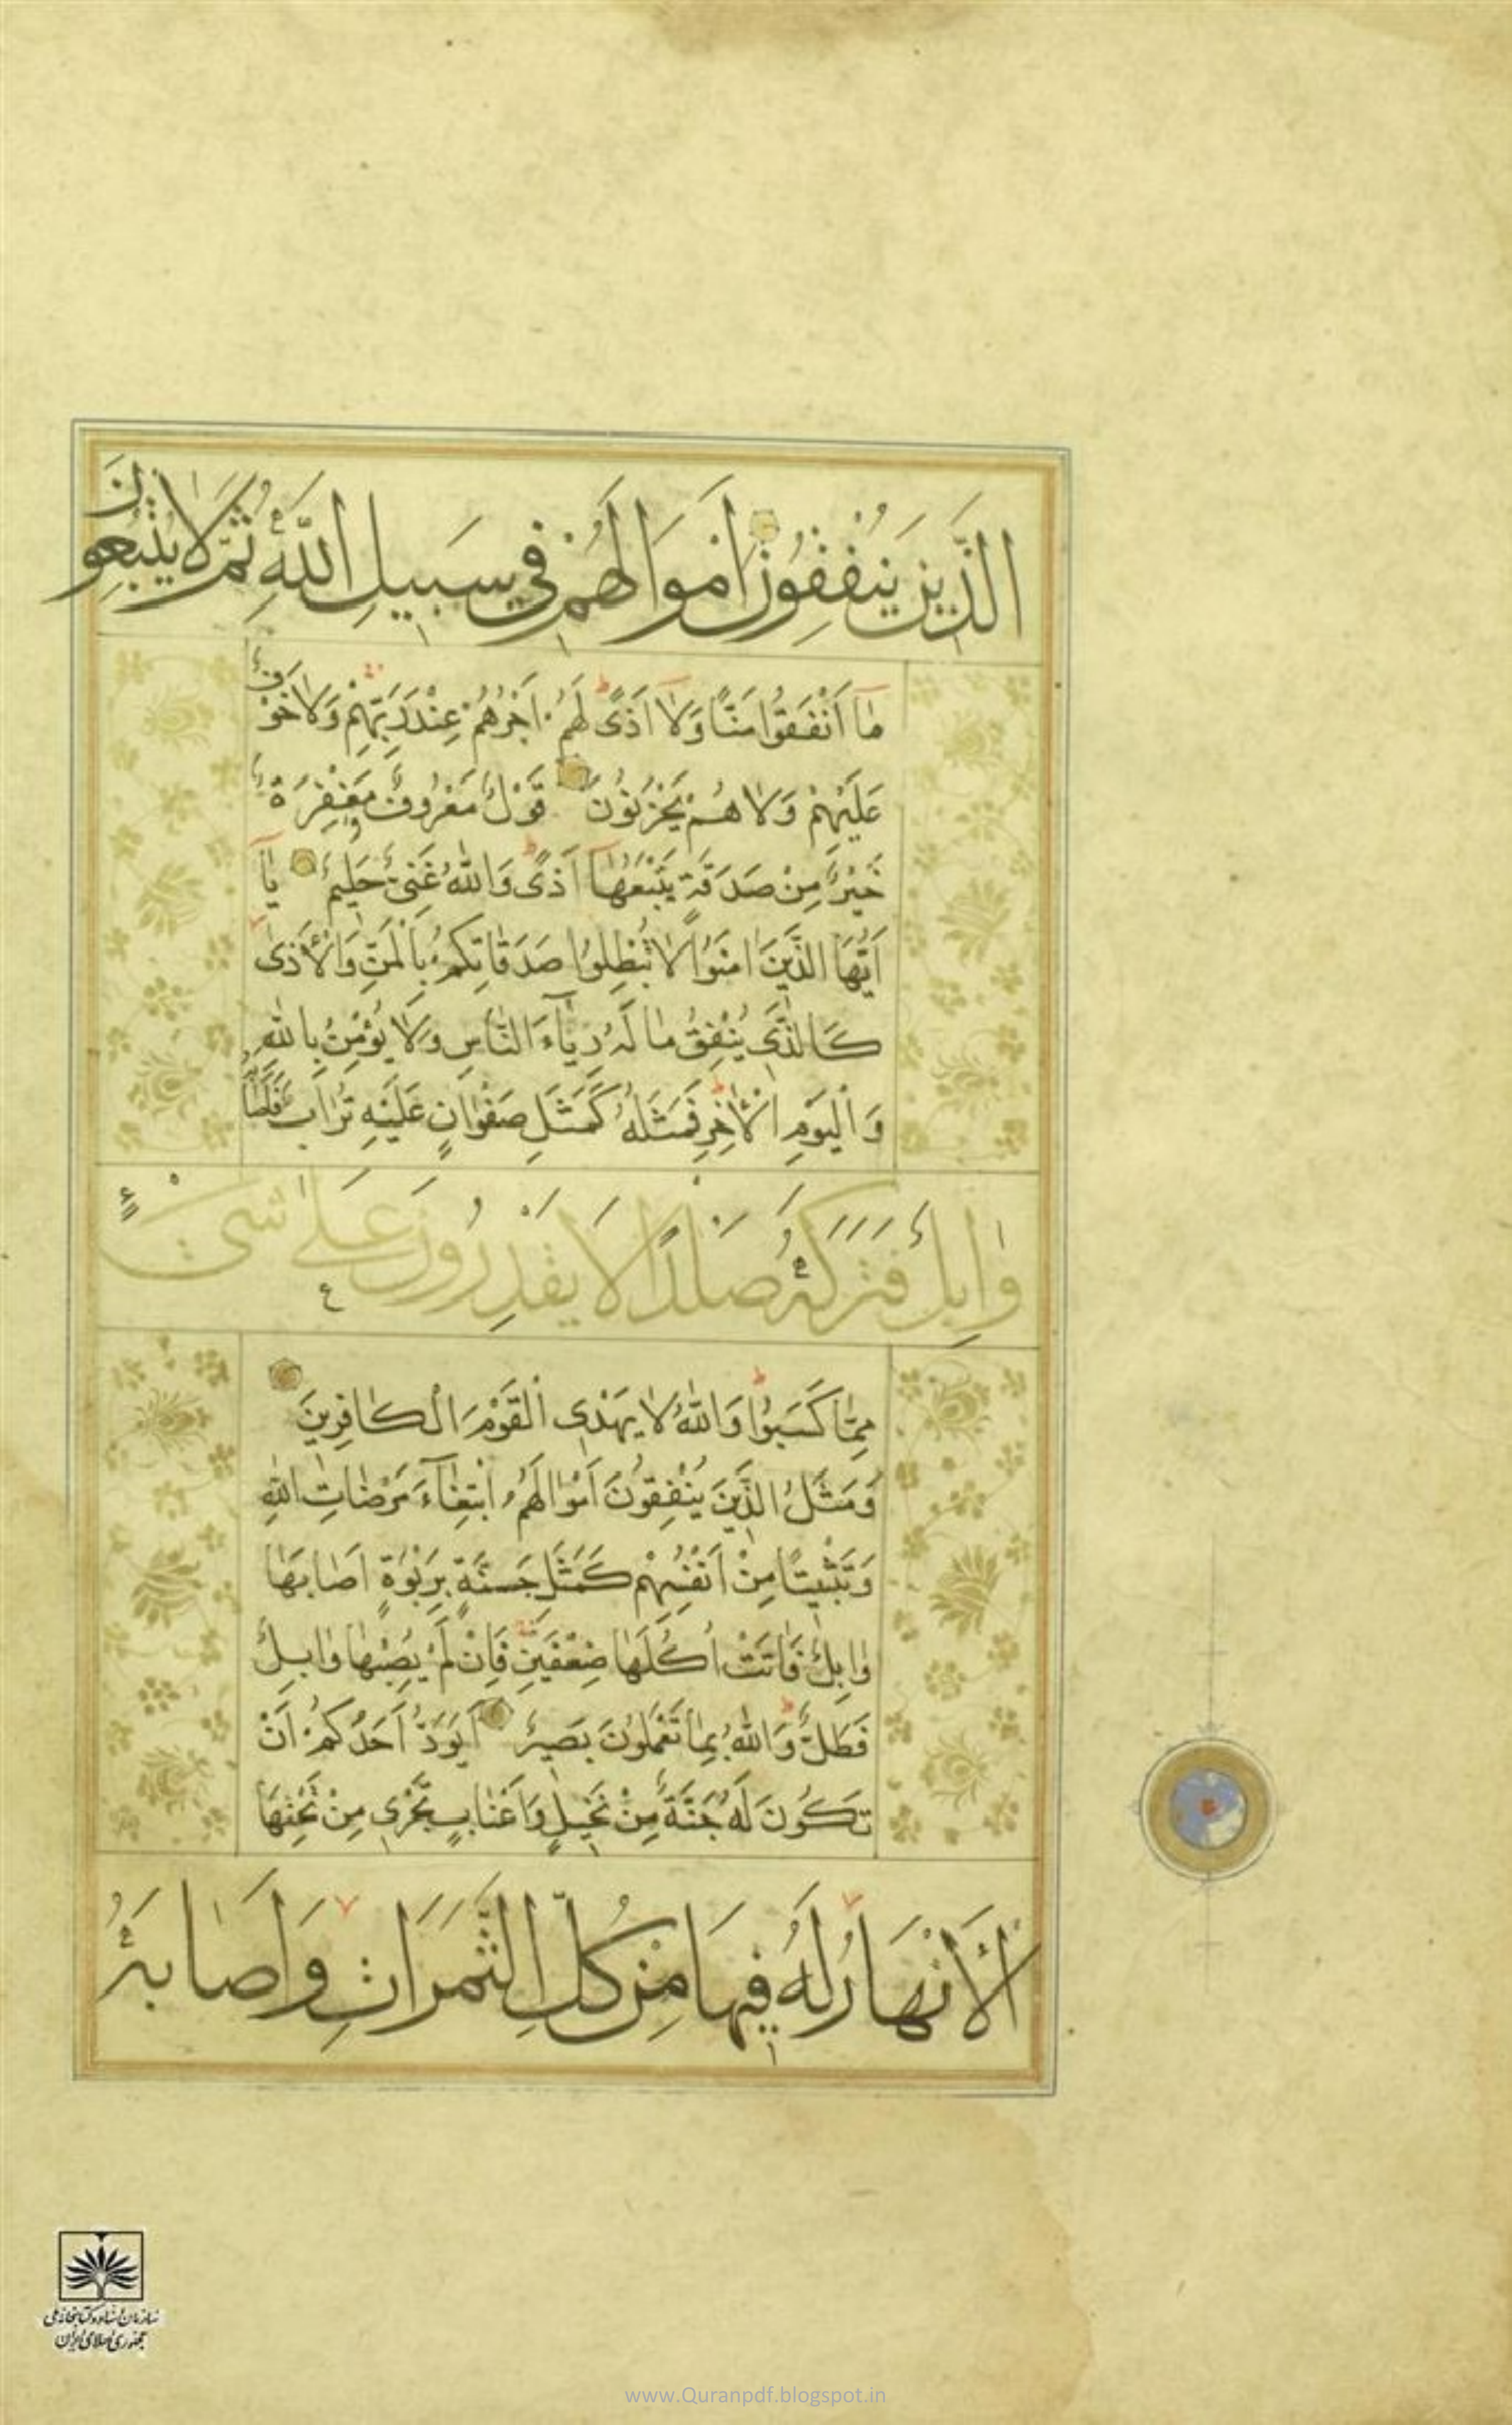 الَّذِينَ يُنْفِقُونَ اَمْوَالَهُمْ فِي سَبِيلِ اللَّهِ ثُمَّ لَا يُتْبِعُونَ
مَا اَنْفَقُوا مَنًّا وَلَا اَذًى لَهُمْ اَجْرُهُمْ عِنْدَ رَبِّهِمْ وَلَا خَوْفٌ
عَلَيْهِمْ وَلَا هُمْ يَحْزَنُونَ قَوْلٌ مَعْرُوفٌ وَمَغْفِرَةٌ
خَيْرٌ مِنْ صَدَقَةٍ يَتْبَعُهَا اَذًى وَاللَّهُ غَنِيٌّ حَلِيمٌ يَا
اَيُّهَا الَّذِينَ اٰمَنُوا لَا تُبْطِلُوا صَدَقَاتِكُمْ بِالْمَنِّ وَالْاَذٰى
كَالَّذِي يُنْفِقُ مَالَهُ رِيَاءَ النَّاسِ وَلَا يُؤْمِنُ بِاللَّهِ
وَالْيَوْمِ الْاٰخِرِ فَمَثَلُهُ كَمَثَلِ صَفْوَانٍ عَلَيْهِ تُرَابٌ فَاَصَابَهُ
وَابِلٌ فَتَرَكَهُ صَلْدًا لَا يَقْدِرُونَ عَلٰى شَيْءٍ
مِمَّا كَسَبُوا وَاللَّهُ لَا يَهْدِي الْقَوْمَ الْكَافِرِينَ
وَمَثَلُ الَّذِينَ يُنْفِقُونَ اَمْوَالَهُمُ ابْتِغَاءَ مَرْضَاتِ اللَّهِ
وَتَثْبِيتًا مِنْ اَنْفُسِهِمْ كَمَثَلِ جَنَّةٍ بِرَبْوَةٍ اَصَابَهَا
وَابِلٌ فَاٰتَتْ اُكُلَهَا ضِعْفَيْنِ فَاِنْ لَمْ يُصِبْهَا وَابِلٌ
فَطَلٌّ وَاللَّهُ بِمَا تَعْمَلُونَ بَصِيرٌ اَيَوَدُّ اَحَدُكُمْ اَنْ
تَكُونَ لَهُ جَنَّةٌ مِنْ نَخِيلٍ وَاَعْنَابٍ تَجْرِي مِنْ تَحْتِهَا
الْاَنْهَارُ لَهُ فِيهَا مِنْ كُلِّ الثَّمَرَاتِ وَاَصَابَهُ
سازمان اسناد و کتابخانه ملی
جمهوری اسلامی ایران
www.Quranpdf.blogspot.in